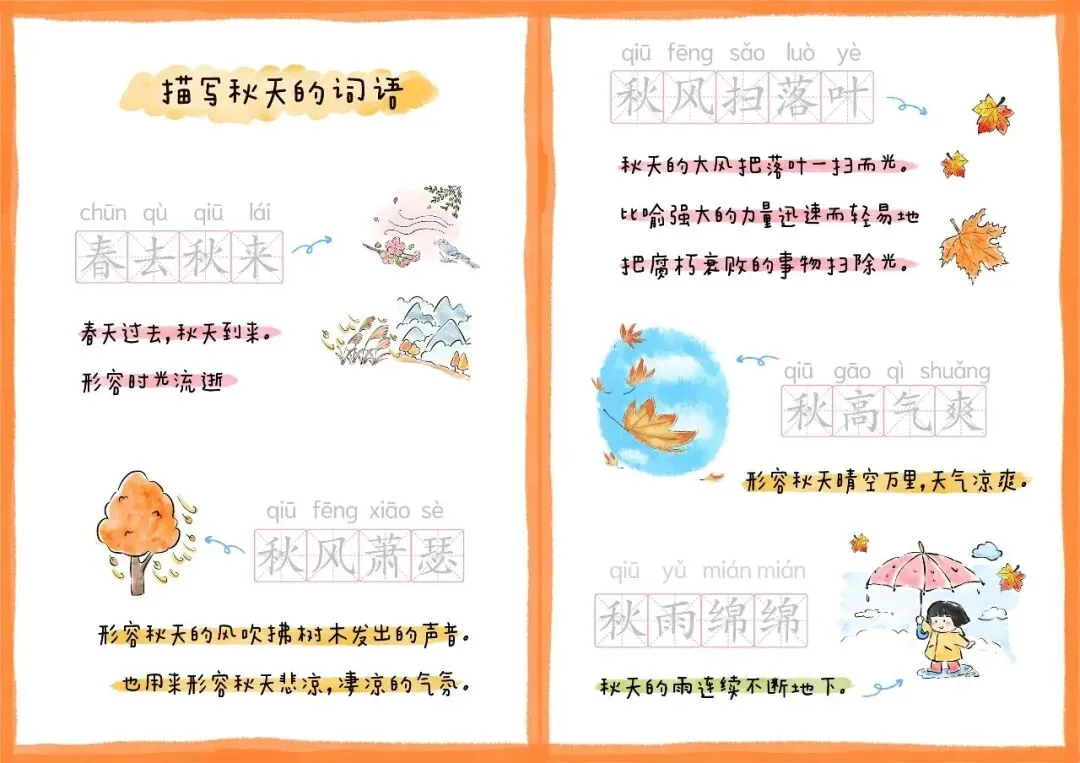 描写秋天的词语
chūn qù qiū lái
春去秋来
春天过去,秋天到来。
形容时光流逝
qiū fēng xiāo sè
秋风萧瑟
形容秋天的风吹拂树木发出的声音。
也用来形容秋天悲凉,凄凉的气氛。
qiū fēng sǎo luò yè
秋风扫落叶
秋天的大风把落叶一扫而光。
比喻强大的力量迅速而轻易地
把腐朽衰败的事物扫除光。
qiū gāo qì shuǎng
秋高气爽
形容秋天晴空万里,天气凉爽。
qiū yǔ mián mián
秋雨绵绵
秋天的雨连续不断地下。